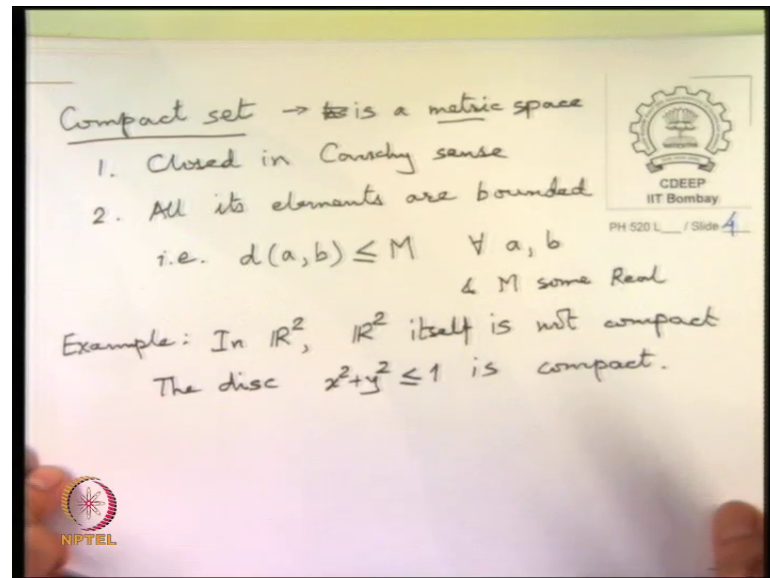 Compact set → is a metric space
1. Closed in Cauchy sense
2. All its elements are bounded
i.e. d(a,b) ≤ M ∀ a, b
& M some Real
Example: In ℝ², ℝ² itself is not compact
The disc x²+y² ≤ 1 is compact.
CDEEP
IIT Bombay
PH 520 L___ / Slide 4
NPTEL